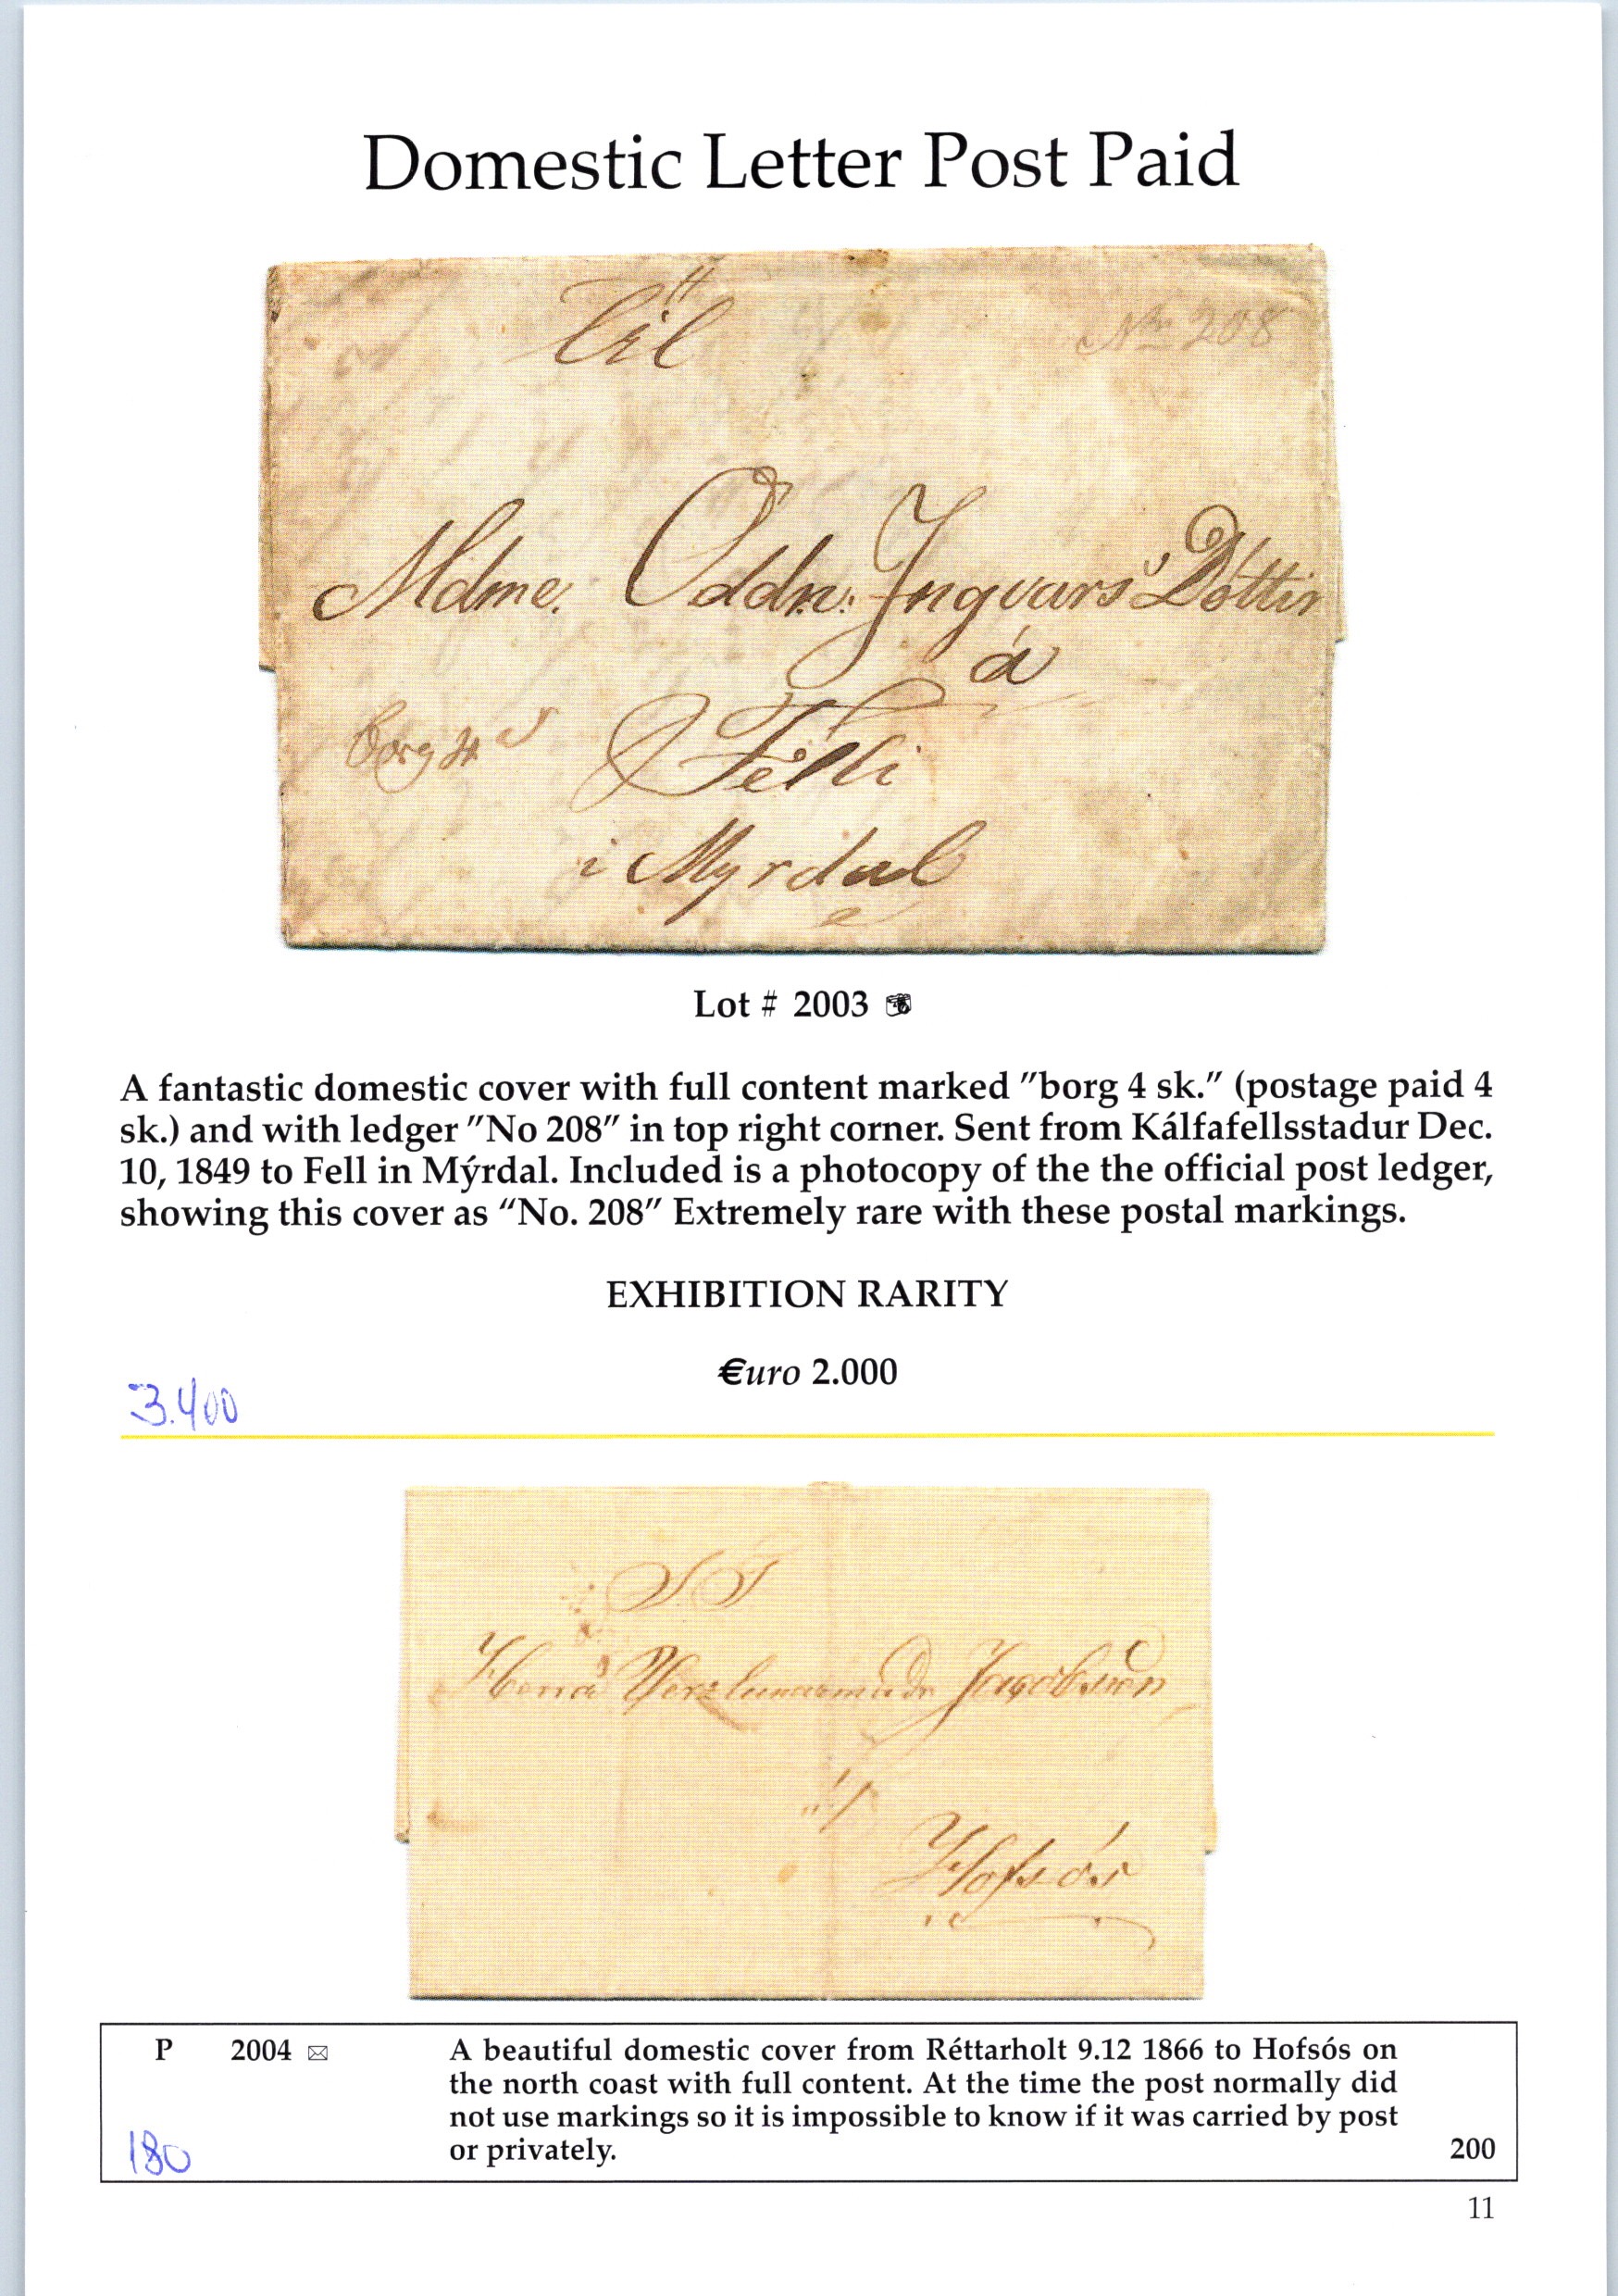 Domestic Letter Post Paid
Til
No 208
Mdme. Oddn: Ingvars Dóttir
á
borg 4 s
Felli
i Myrdal
Lot # 2003
A fantastic domestic cover with full content marked "borg 4 sk." (postage paid 4
sk.) and with ledger "No 208" in top right corner. Sent from Kálfafellsstadur Dec.
10, 1849 to Fell in Mýrdal. Included is a photocopy of the the official post ledger,
showing this cover as "No. 208" Extremely rare with these postal markings.
EXHIBITION RARITY
€uro 2.000
3.400
S.T
Herra Jacobsen
Hofsós
P 2004 ✉ A beautiful domestic cover from Réttarholt 9.12 1866 to Hofsós on
the north coast with full content. At the time the post normally did
not use markings so it is impossible to know if it was carried by post
or privately. 200
180
11